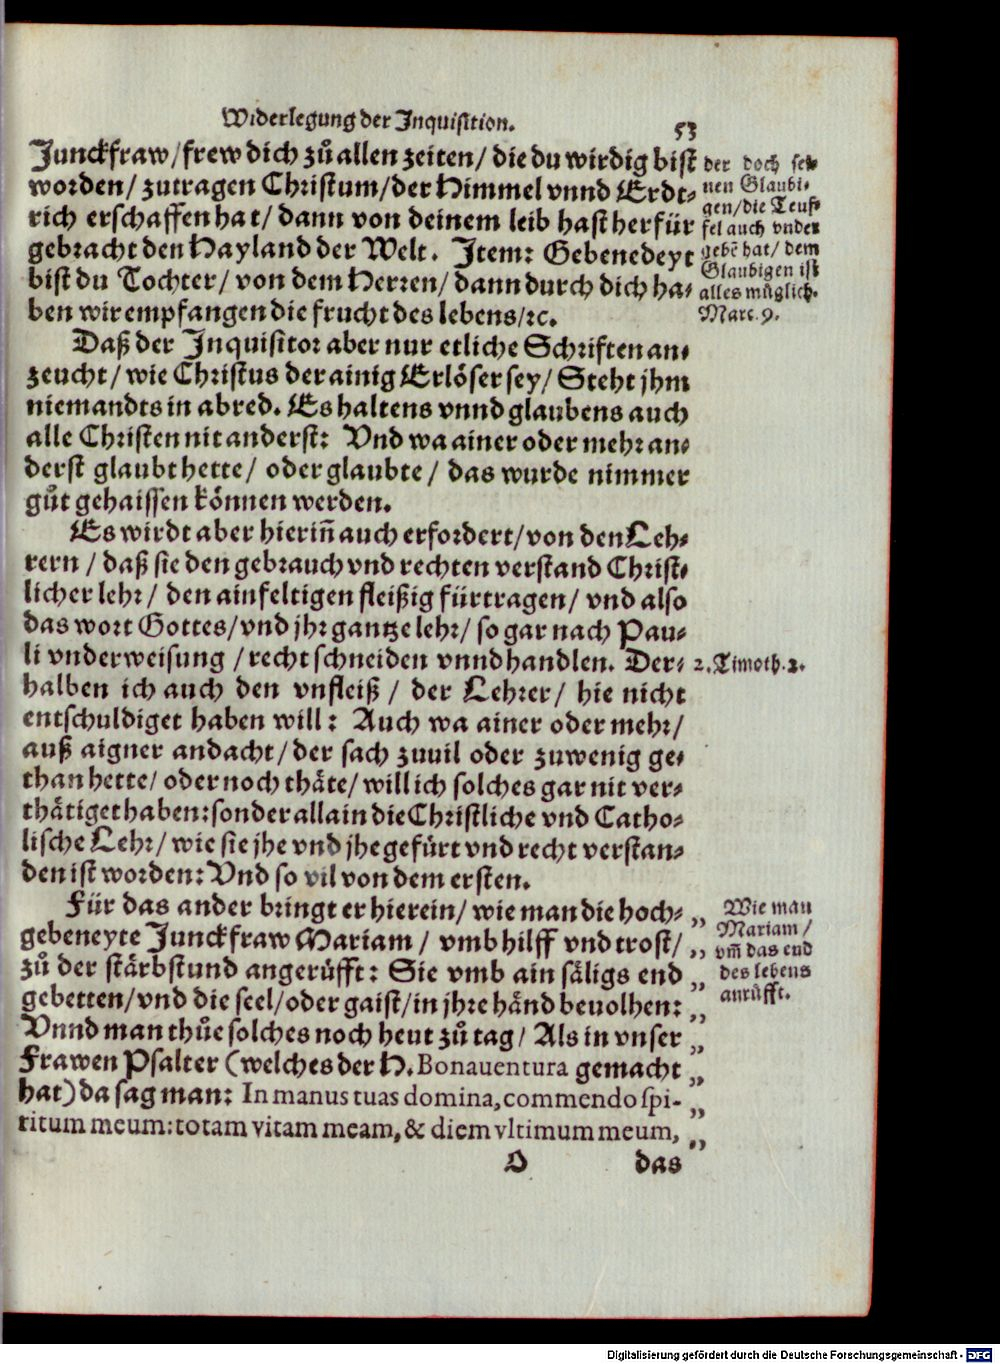 Widerlegung der Inquisition.
53
Junckfraw/frew dich zů allen zeiten/ die du wirdig bist
worden/ zutragen Christum/der Himmel vnnd Erdt-
rich erschaffen hat/ dann von deinem leib hast herfür
gebracht den Hayland der Welt. Item: Gebenedeyt
bist du Tochter/ von dem Herren/ dann durch dich ha-
ben wir empfangen die frucht des lebens/ꝛc.
der doch sei-
nen Glaubi-
gen/die Teuf-
fel auch vnder
gebẽ hat/ dem
Glaubigen ist
alles müglich.
Marc. 9.
Daß der Inquisitor aber nur etliche Schriften an-
zeucht/ wie Christus der ainig Erlöser sey/ Steht jhm
niemandts in abred. Es haltens vnnd glaubens auch
alle Christen nit anderst: Vnd wa ainer oder mehr an-
derst glaubt hette/ oder glaubte/ das wurde nimmer
gůt gehaissen können werden.
Es wirdt aber hieriñ auch erfordert/von den Leh-
rern / daß sie den gebrauch vnd rechten verstand Christ-
licher lehr/ den ainfeltigen fleißig fürtragen/ vnd also
das wort Gottes/vnd jhr gantze lehr/ so gar nach Pau-
li vnderweisung /recht schneiden vnnd handlen. Der-
2. Timoth. 2.
halben ich auch den vnfleiß / der Lehrer/ hie nicht
entschuldiget haben will: Auch wa ainer oder mehr/
auß aigner andacht/der sach zuuil oder zuwenig ge-
than hette/ oder noch thäte/ will ich solches gar nit ver-
thätiget haben: sonder allain die Christliche vnd Catho-
lische Lehr/ wie sie jhe vnd jhe gefürt vnd recht verstan-
den ist worden: Vnd so vil von dem ersten.
Für das ander bringt er hierein/ wie man die hoch- „
gebeneyte Junckfraw Mariam / vmb hilff vnd trost/ „
zů der stärbstund angerůfft: Sie vmb ain säligs end „
gebetten/vnd die seel/oder gaist/in jhre händ beuolhen: „
Vnnd man thůe solches noch heut zů tag/ Als in vnser „
Frawen Psalter (welches der H. Bonauentura gemacht „
hat) da sag man: In manus tuas domina, commendo spi- „
ritum meum: totam vitam meam, & diem vltimum meum, „
Wie man
Mariam /
vm̃ das end
des lebens
anrůfft.
O
das
Digitalisierung gefördert durch die Deutsche Forschungsgemeinschaft - DFG